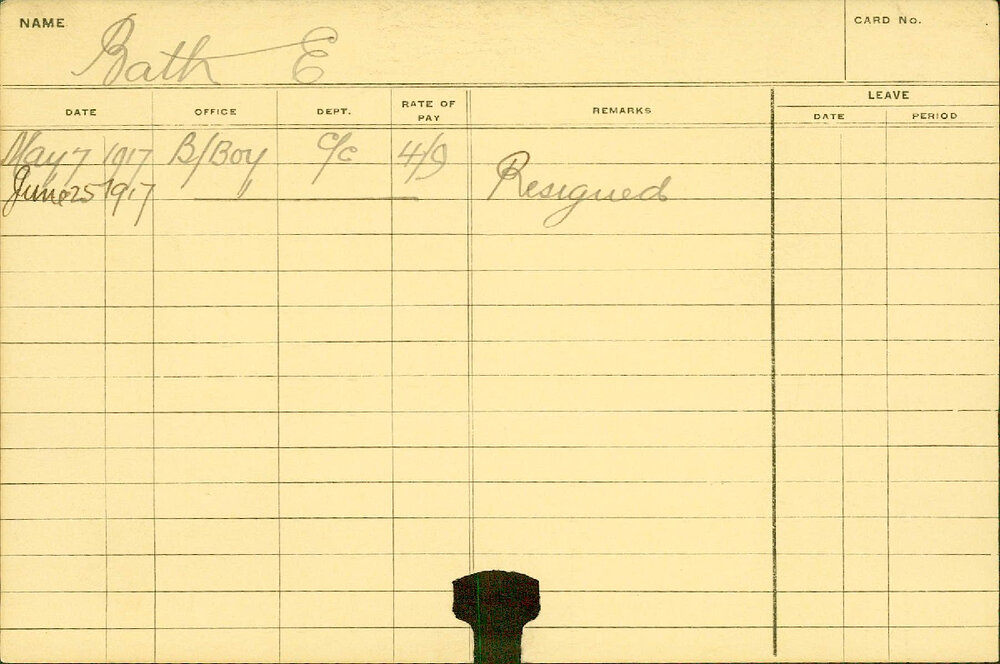 NAME Bath E CARD No.
DATE OFFICE DEPT. RATE OF PAY REMARKS LEAVE
DATE PERIOD
May 7 1917 B/Boy C/C 4/9
June 25 1917 " Resigned